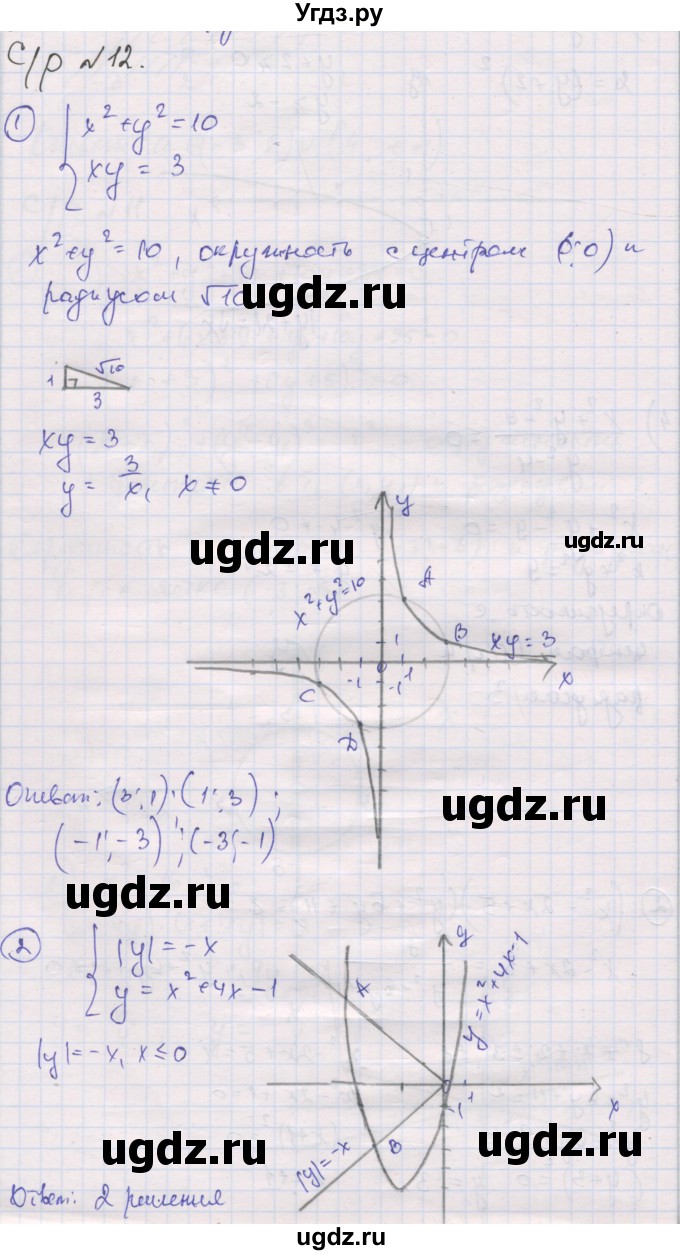 Угдз.ру
С/р №12.
1 x²+y²=10
xy = 3
x²+y²=10, окружность с центром (0;0) и
радиусом √10
ugdz.ru
1 √10
3
xy = 3
y = 3/x, x ≠ 0
ugdz.ru
ugdz.ru
y
A
x²+y²=10
B
xy = 3
1
-1 0 1
-1
x
C
D
Ответ: (3;1); (1;3);
(-1;-3); (-3;-1)
ugdz.ru
ugdz.ru
2 |y|=-x
y = x²+4x-1
|y|=-x, x≤0
y
A
y=x²+4x-1
1
-1
x
B
|y|=-x
ugdz.ru
ugdz.ru
Ответ: 2 решения
ugdz.ru